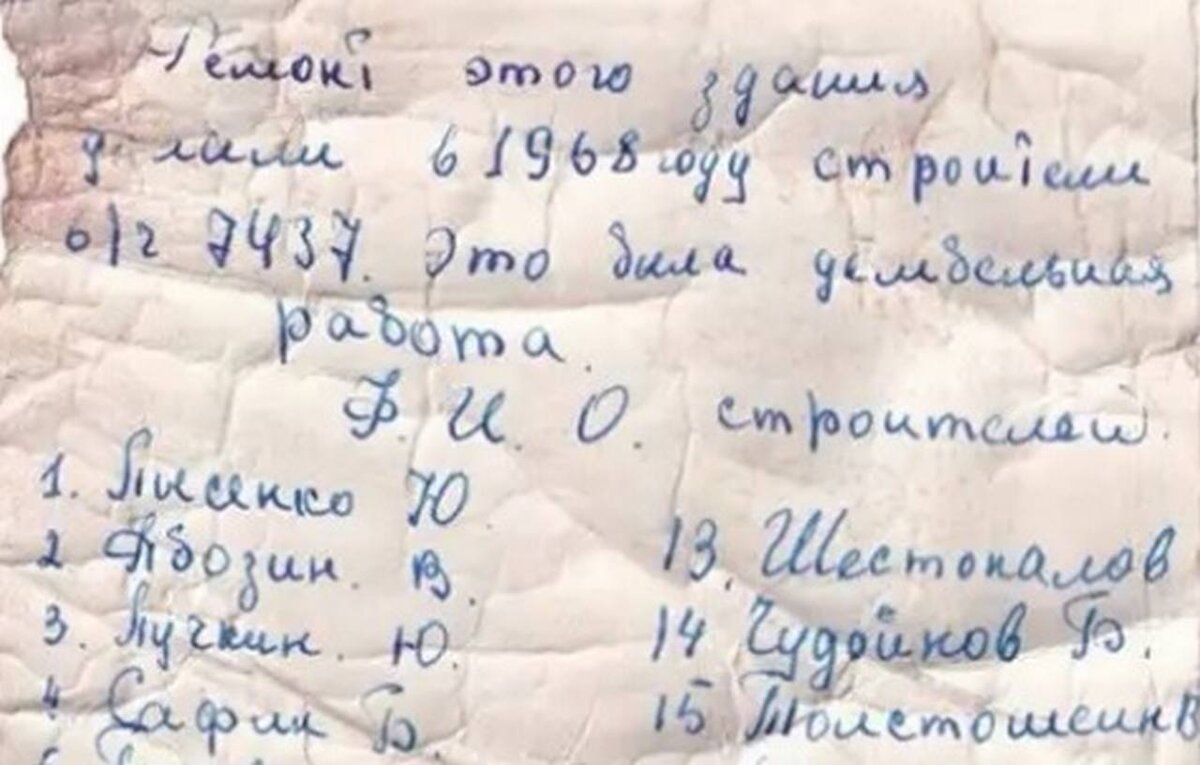 Ремонт этого здания
делали в 1968 году строители
в/ч 7437. Это была дембельная
работа.
Ф. И. О. строителей.
1. Лысенко Ю
2 Абозин. В.
3. Лучкин. Ю.
4 Сафин Б.
13. Шестопалов
14 Чудойнов Б.
15